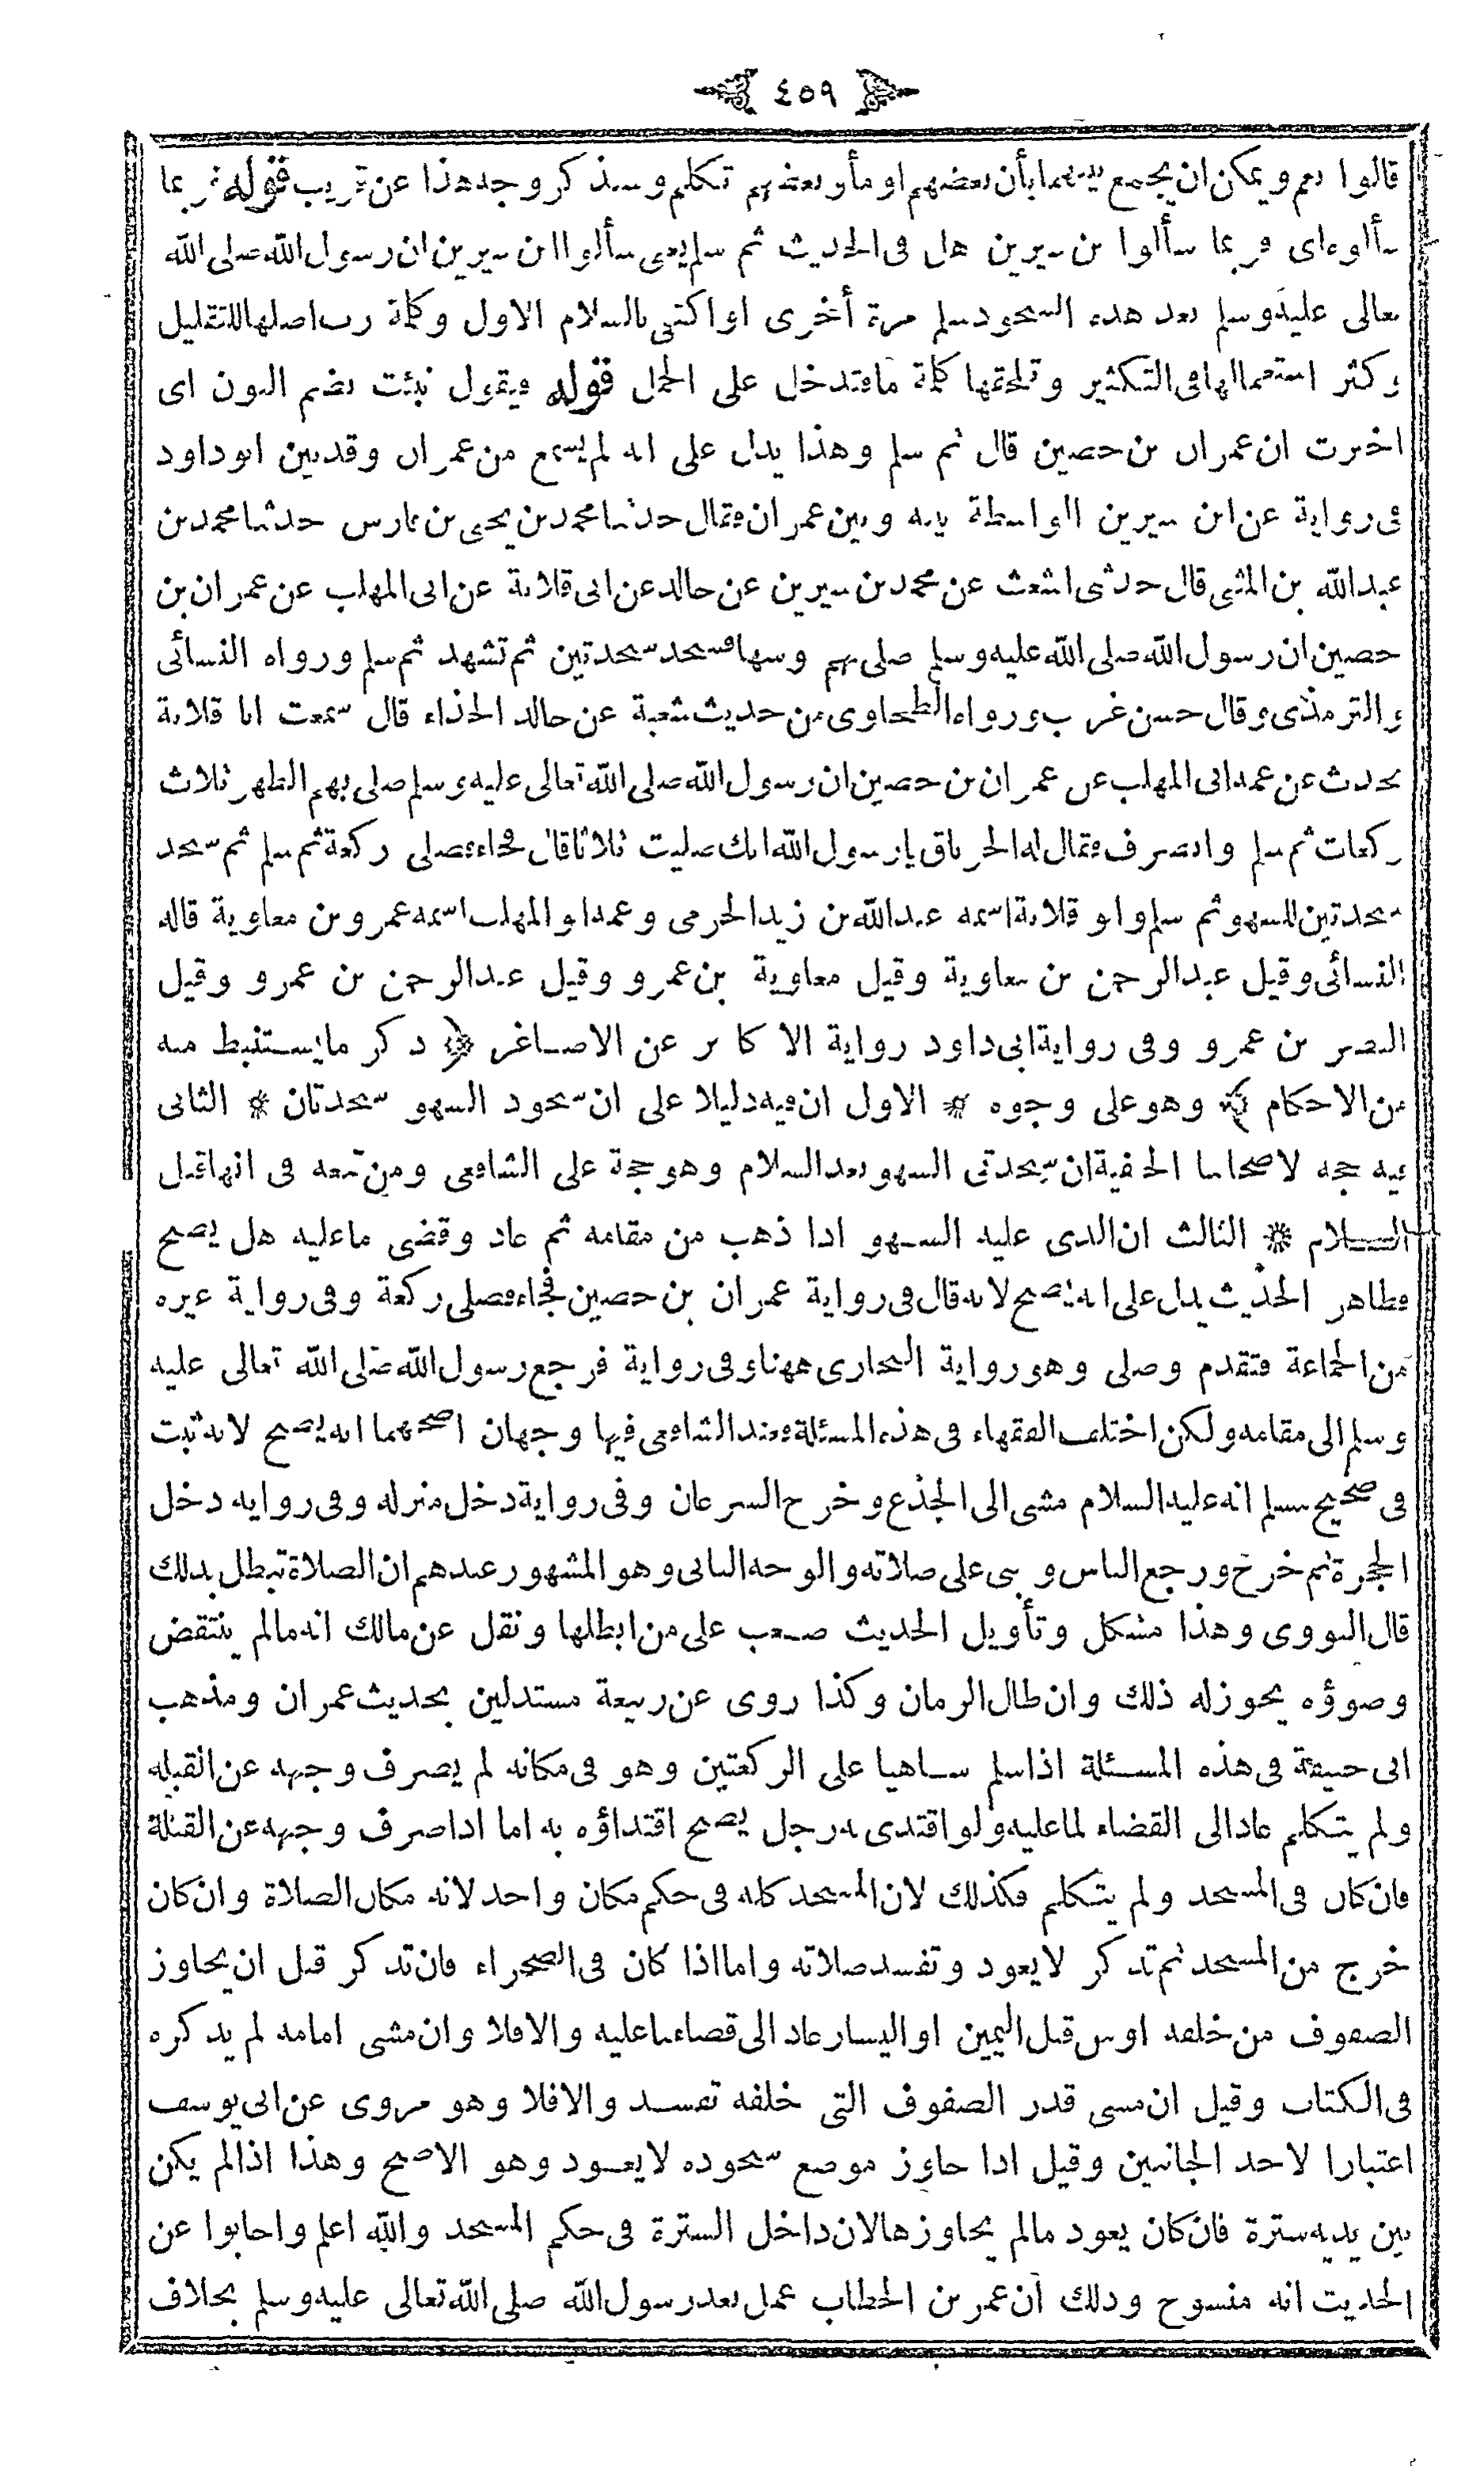 ٤٥٩
قالوا نعم ويمكن ان يجمع بينهما بأن بعضهم اومأ وبعضهم تكلم وسنذكر وجه هذا عن قريب قوله فربما
سألوه اى فربما سألوا ابن سيرين هل فى الحديث ثم سلم يعنى سألوا ابن سيرين ان رسول الله صلى الله
تعالى عليه وسلم بعد هذه السجود سلم مرة أخرى او اكتفى بالسلام الاول وكلة رب اصلها للتقليل
وكثر استعمالها فى التكثير وتلحقها كلة ما فتدخل على الجمل قوله فيقول نبئت بضم النون اى
اخبرت ان عمران بن حصين قال ثم سلم وهذا يدل على انه لم يسمع من عمران وقد بين ابو داود
فى رواية عن ابن سيرين الواسطة بينه وبين عمران فقال حدثنا محمد بن يحيى بن فارس حدثنا محمد بن
عبدالله بن المثنى قال حدثنى اشعث عن محمد بن سيرين عن خالد عن ابى قلابة عن ابى المهلب عن عمران بن
حصين ان رسول الله صلى الله عليه وسلم صلى بهم وسها فسجد سجدتين ثم تشهد ثم سلم ورواه النسائى
والترمذى وقال حسن غريب ورواه الطحاوى من حديث شعبة عن خالد الحذاء قال سمعت ابا قلابة
يحدث عن عمه ابى المهلب عن عمران بن حصين ان رسول الله صلى الله تعالى عليه وسلم صلى بهم الظهر ثلاث
ركعات ثم سلم وانصرف فقال له الخرباق يارسول الله انك صليت ثلاثا قال فجاء فصلى ركعة ثم سلم ثم سجد
سجدتين للسهو ثم سلم وابو قلابة اسمه عبدالله بن زيد الجرمى وعمه ابو المهلب اسمه عمرو بن معاوية قاله
النسائى وقيل عبدالرحمن بن معاوية وقيل معاوية بن عمرو وقيل عبدالرحمن بن عمرو وقيل
النضر بن عمرو وفى رواية ابى داود رواية الاكابر عن الاصاغر ﴿ ذكر مايستنبط منه
من الاحكام ﴾ وهو على وجوه * الاول ان فيه دليلا على ان سجود السهو سجدتان * الثانى
فيه حجة لاصحابنا الحنفية ان سجدتى السهو بعد السلام وهو حجة على الشافعى ومن تبعه فى انها قبل
السلام * الثالث ان الذى عليه السهو اذا ذهب من مقامه ثم عاد وقضى ماعليه هل يصح
فظاهر الحديث يدل على انه يصح لانه قال فى رواية عمران بن حصين فجاء فصلى ركعة وفى رواية غيره
من الجماعة فتقدم وصلى وهو رواية البخارى ههنا وفى رواية فرجع رسول الله صلى الله تعالى عليه
وسلم الى مقامه ولكن اختلف الفقهاء فى هذه المسئلة فعند الشافعى فيها وجهان اصحهما انه يصح لانه ثبت
فى صحيح مسلم انه عليه السلام مشى الى الجذع وخرج السرعان وفى رواية دخل منزله وفى رواية دخل
الحجرة ثم خرج ورجع الناس وبنى على صلاته والوجه الثانى وهو المشهور عندهم ان الصلاة تبطل بذلك
قال النووى وهذا مشكل وتأويل الحديث صعب على من ابطلها ونقل عن مالك انه مالم ينتقض
وضوؤه يجوز له ذلك وان طال الزمان وكذا روى عن ربيعة مستدلين بحديث عمران ومذهب
ابى حنيفة فى هذه المسئلة اذا سلم ساهيا على الركعتين وهو فى مكانه لم يصرف وجهه عن القبلة
ولم يتكلم عاد الى القضاء لما عليه ولو اقتدى به رجل يصح اقتداؤه به اما اذا صرف وجهه عن القبلة
فان كان فى المسجد ولم يتكلم فكذلك لان المسجد كله فى حكم مكان واحد لانه مكان الصلاة وان كان
خرج من المسجد ثم تذكر لايعود وتفسد صلاته واما اذا كان فى الصحراء فان تذكر قبل ان يجاوز
الصفوف من خلفه او من قبل اليمين او اليسار عاد الى قضاء ما عليه والا فلا وان مشى امامه لم يذكره
فى الكتاب وقيل ان مشى قدر الصفوف التى خلفه تفسد والا فلا وهو مروى عن ابى يوسف
اعتبارا لاحد الجانبين وقيل اذا جاوز موضع سجوده لايعود وهو الاصح وهذا اذا لم يكن
بين يديه سترة فان كان يعود مالم يجاوزها لان داخل السترة فى حكم المسجد والله اعلم واجابوا عن
الحديث انه منسوخ وذلك ان عمر بن الخطاب عمل بعد رسول الله صلى الله تعالى عليه وسلم بخلاف